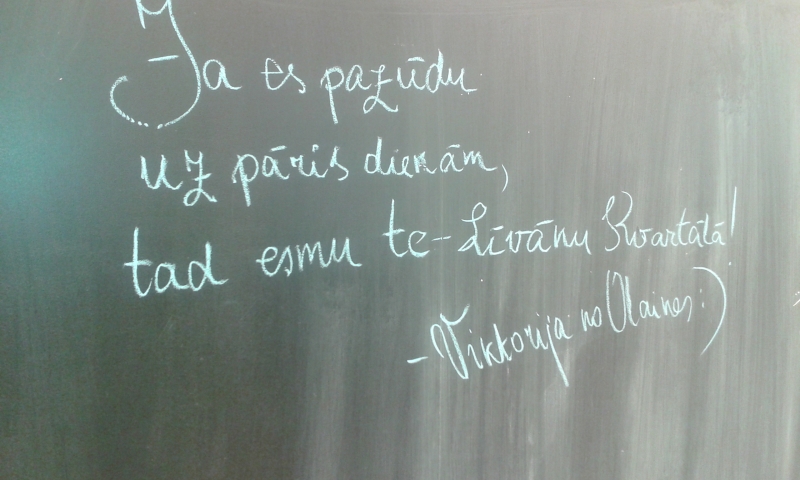 Ja es pazūdu
uz pāris dienām,
tad esmu te- Līvānu Kvartālā!
- Viktorija no Olaines :)